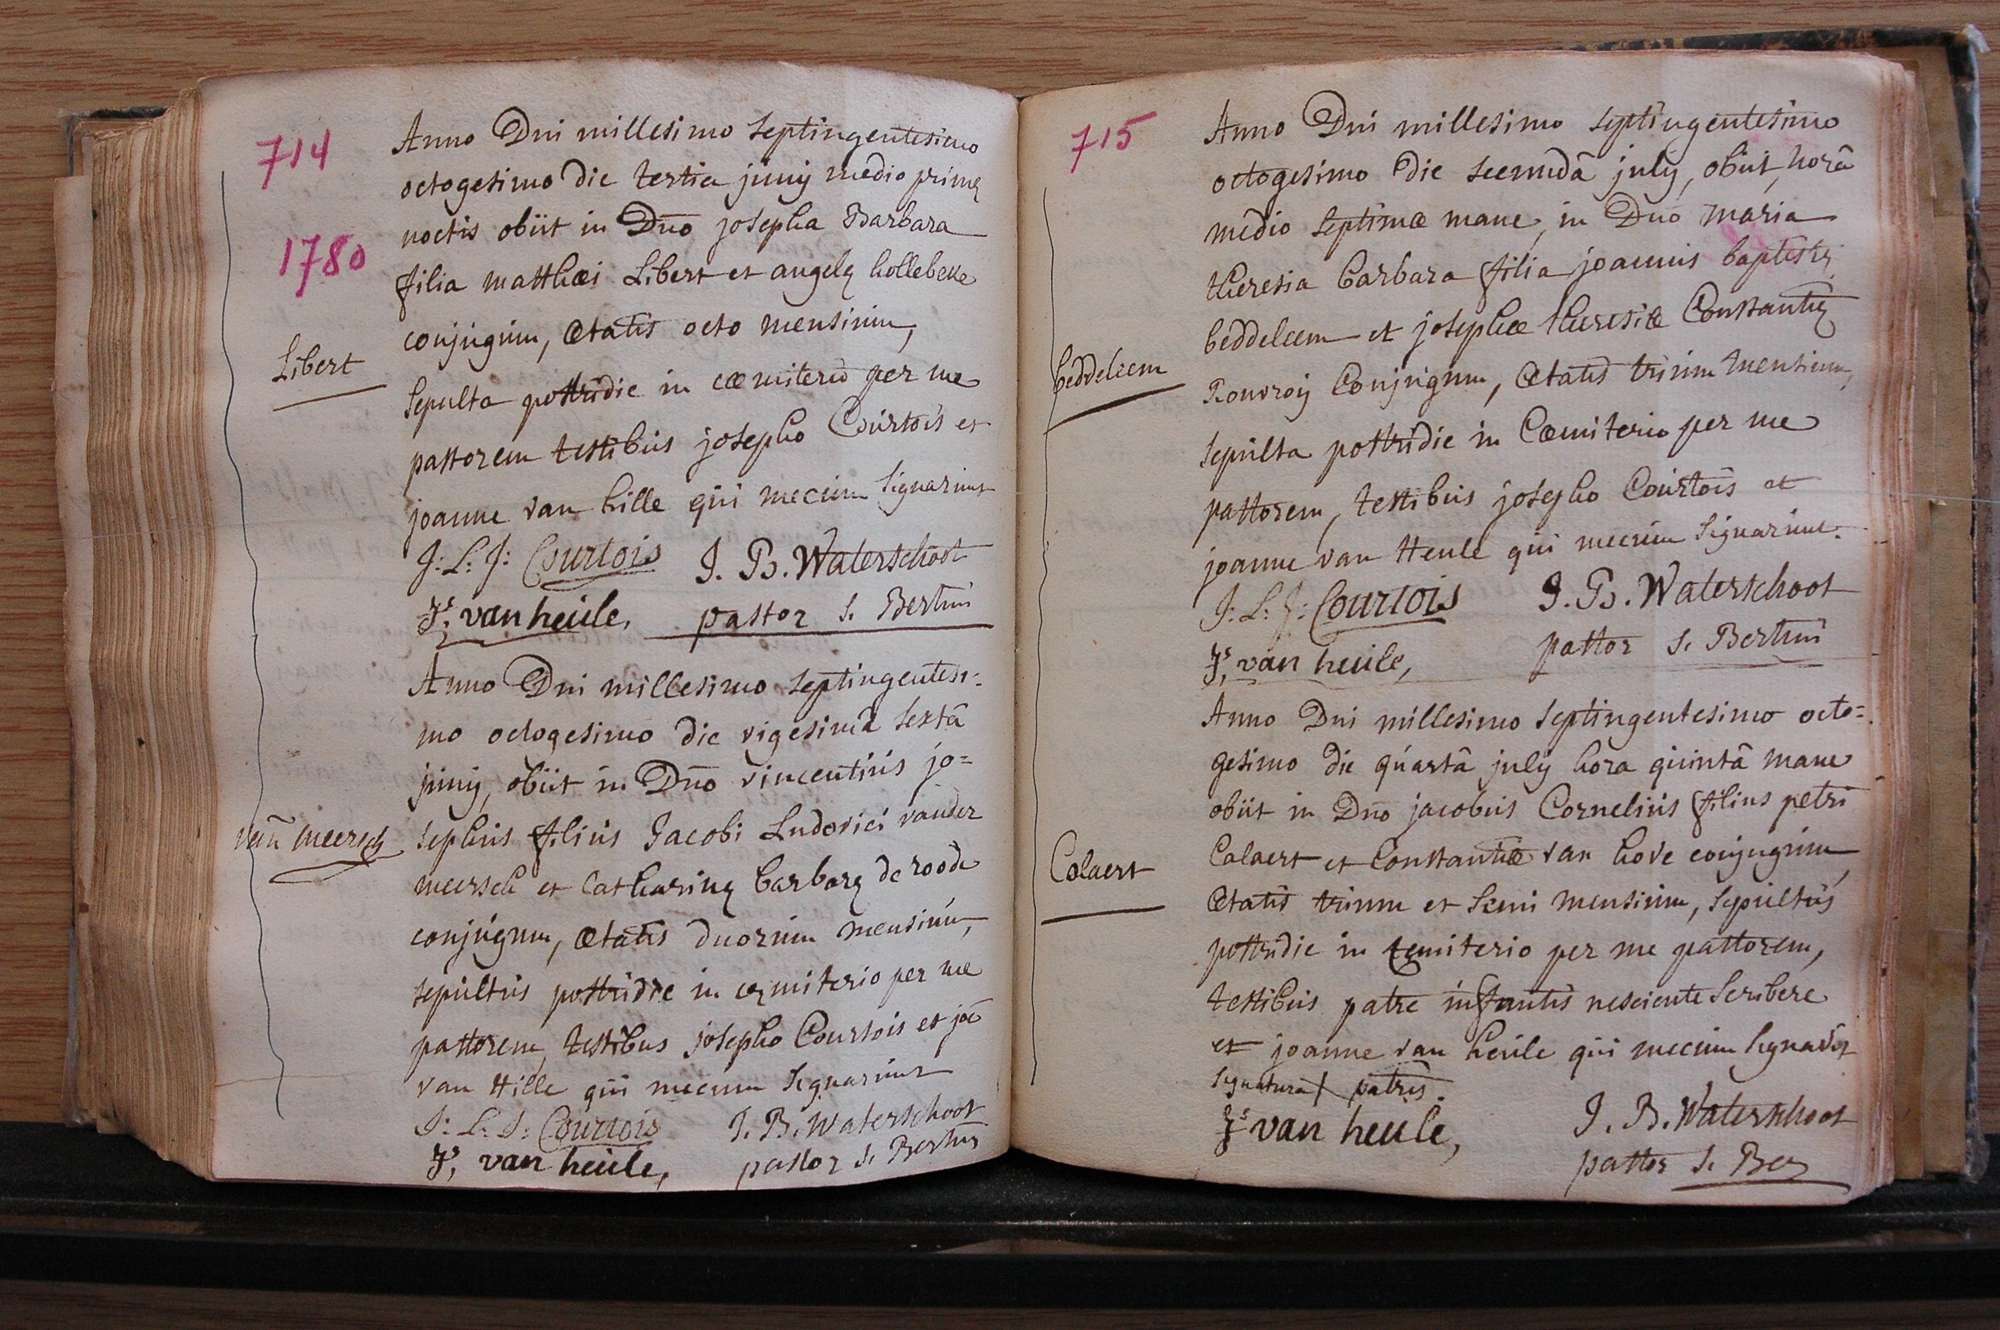 714
1780
Anno Dni millesimo septingentesimo
octogesimo die tertia junij medio primę
noctis obiit in Dno josepha Barbara
filia matthæi Libert et angelę hollebeke
conjugum, ætatis octo mensium,
Libert
sepulta postridie in cœmiterio per me
pastorem testibus josepho Courtois et
joanne van hille qui mecum signarunt
J: L: J: Courtois J. B. Waterschoot
Js. van heule, pastor S. Bertini
Anno Dni millesimo septingentesi-
mo octogesimo die vigesimâ sextâ
junij, obiit in Dno vincentius jo=
sephus filius Jacobi Ludovici vander
van meersch
meersch et Catharinę barbarę de roode
conjugum, ætatis duorum mensium,
sepultus postridie in cęmiterio per me
pastorem, testibus josepho Courtois et joe
van Hille qui mecum signarunt
J: L: J: Courtois J. B. Waterschoot
Js. van heule, pastor S. Bertini
715
Anno Dni millesimo septingentesimo
octogesimo die secundâ july, obiit, horâ
medio septimæ mane, in Dno maria
theresia barbara filia joannis baptistę
beddeleem et josephæ theresiæ Constantię
beddeleem
Rouvroij conjugum, ætatis trium mensium,
sepulta postridie in Cœmiterio per me
pastorem, testibus josepho Courtois et
joanne van Heule qui mecum signarunt.
J: L: J: Courtois J. B. Waterschoot
Js. van heule, pastor S. Bertini
Anno Dni millesimo septingentesimo octo=
gesimo die quartâ july hora quintâ mane
obiit in Dno jacobus Cornelius filius petri
Colaert
Calaert et Constantiæ van hove conjugum,
ætatis trium et semi mensium, sepultus
postridie in cęmiterio per me pastorem,
testibus patre infantis nesciente scribere
et joanne van heule qui mecum signavit
signatura + patris.
Js. van heule, J. B. Waterschoot
pastor S. Ber